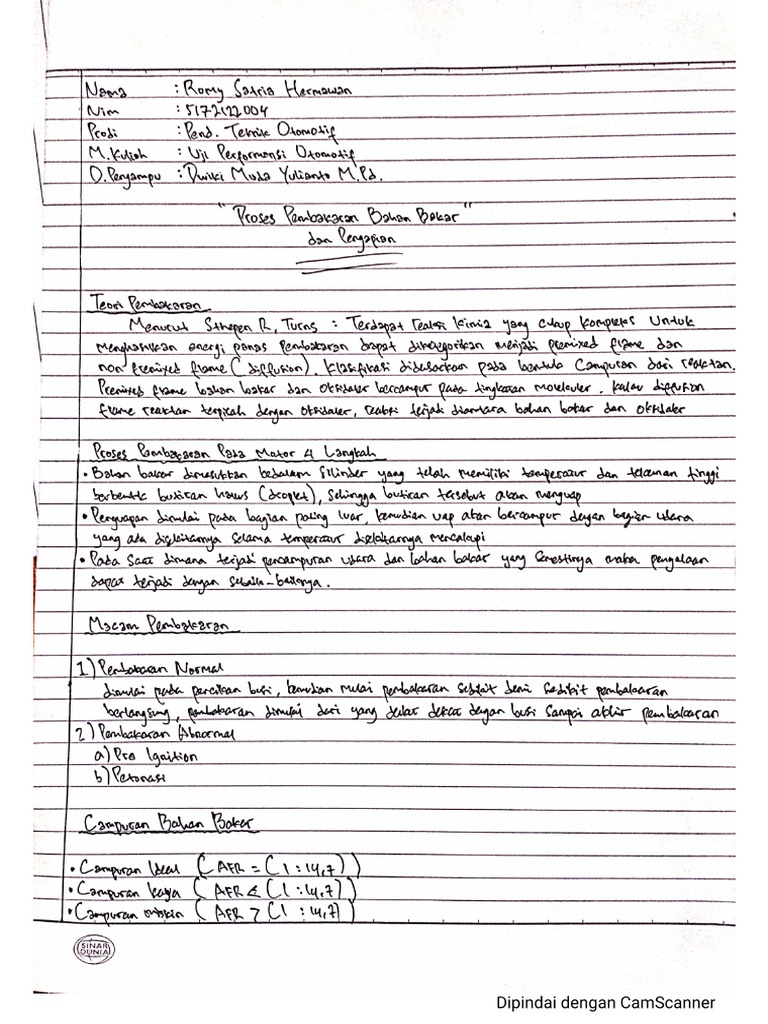 Nama : Romy Satria Hermawan
Nim : 5172122004
Prodi : Pend. Teknik Otomotif
M. Kuliah : Uji Performansi Otomotif
D. Pengampu : Dwiki Muda Yulianto M.Pd.
"Proses Pembakaran Bahan Bakar"
dan Pengapian
Teori Pembakaran
Menurut Sthepen R, Turns : Terdapat reaksi kimia yang cukup kompleks Untuk
menghasilkan energi panas pembakaran dapat dikategorikan menjadi premixed flame dan
non premixed flame (diffusion). Klasifikasi didasarkan pada bentuk Campuran dari reaktan.
Premixed flame bahan bakar dan Oksidator bercampur pada tingkatan molekuler. kalau diffusion
flame reaktan terpisah dengan oksidator, reaksi terjadi diantara bahan bakar dan oksidator
Proses Pembakaran Pada Motor 4 Langkah
• Bahan bakar dimasukkan kedalam silinder yang telah memiliki temperatur dan tekanan tinggi
berbentuk butiran halus (droplet), sehingga butiran tersebut akan menguap
• Penguapan dimulai pada bagian paling luar, kemudian uap akan bercampur dengan bagian udara
yang ada disekitarnya selama temperatur disekitarnya mencukupi
• Pada saat dimana terjadi pencampuran udara dan bahan bakar yang semestinya maka penyalaan
dapat terjadi dengan sebaik-baiknya.
Macam Pembakaran
1) Pembakaran Normal
dimulai pada percikan busi, kemudian mulai pembakaran sedikit demi sedikit pembakaran
berlangsung, pembakaran dimulai dari yang dekat dengan busi sampai akhir pembakaran
2) Pembakaran Abnormal
a) Pre Ignition
b) Detonasi
Campuran Bahan Bakar
• Campuran Ideal (AFR = (1 : 14,7))
• Campuran kaya (AFR < (1 : 14,7))
• Campuran miskin (AFR > (1 : 14,7)
SINAR
DUNIA
Dipindai dengan CamScanner